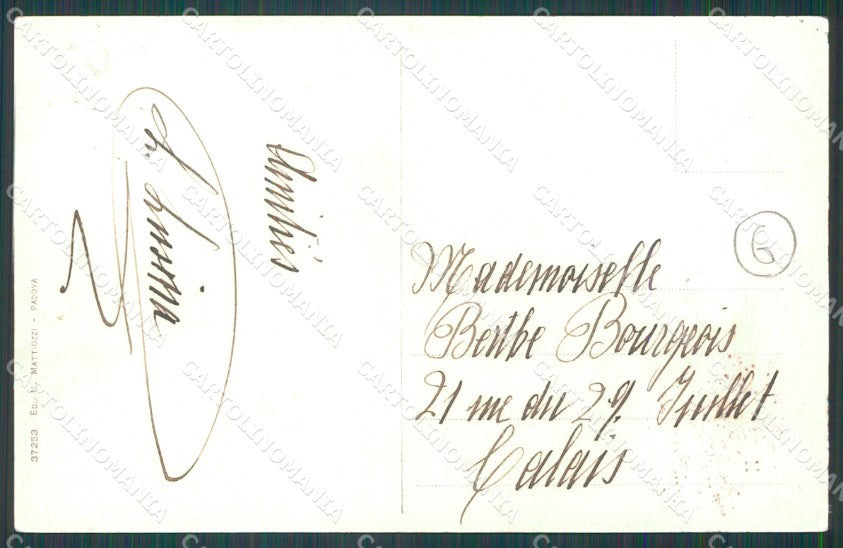 Amitiés
Mademoiselle
Berthe Bourgeois
21 rue du 29. Juillet
Calais
G
37253 Ed. G. Mattiozzi - Padova
CARTOLINOMANIA